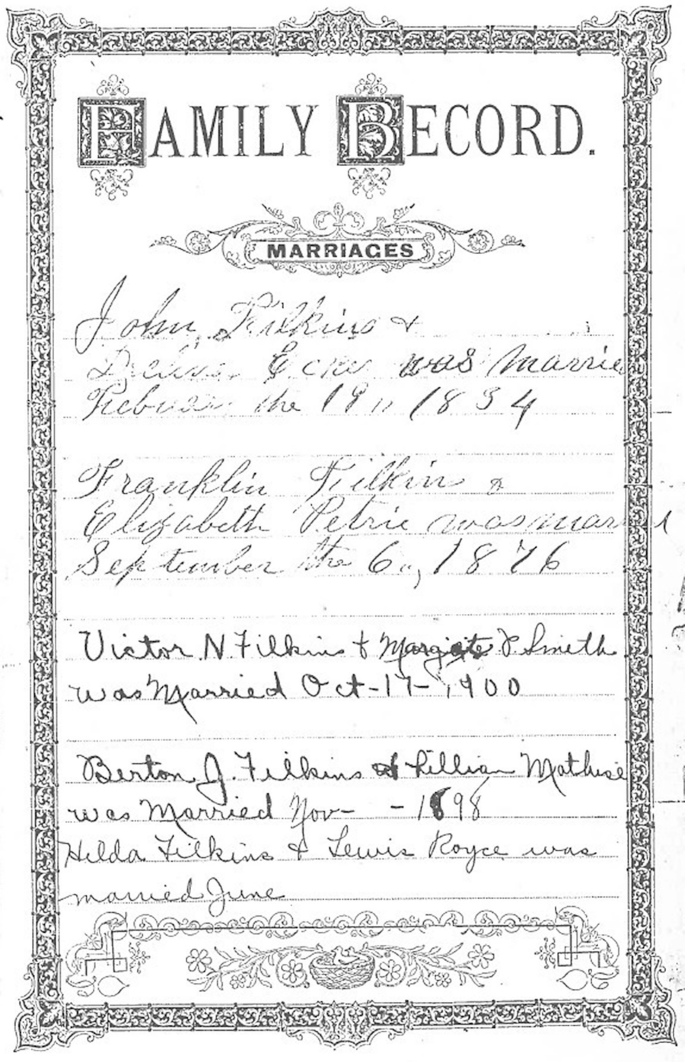 FAMILY RECORD.
MARRIAGES
John Filkins &
was Married
the 19" 1834
Franklin Filkin &
Elizabeth Petrie was married
September the 6", 1876
Victor N Filkins & P Smith
was Married Oct-17-1900
Berton J. Filkins & Lillian
was Married Nov- -1898
Hilda Filkins & Lewis Royce was
married June